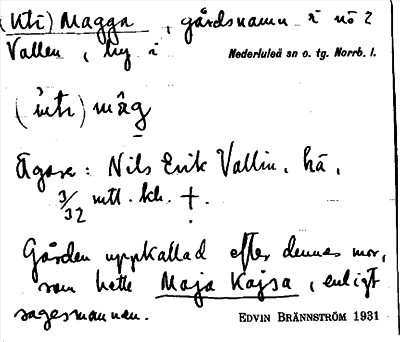 (Uti) Magga, gårdsnamn i nö 2
Vallen, by i Nederluleå sn o. tg. Norrb. l.
(ùti) mâg
Ägare: Nils Erik Vallin, hä,
3/32 mtl. kh. †.
Gården uppkallad efter dennes mor,
som hette Maja Kajsa, enligt
sagesmannen. EDVIN BRÄNNSTRÖM 1931